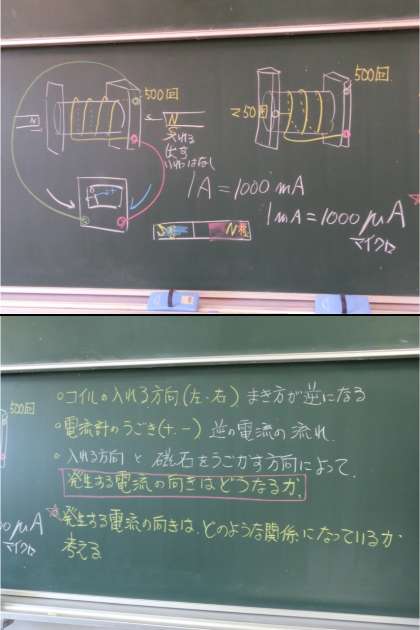 500回
500回
250回
N
S N
入れる
出す
1A = 1000mA
1mA = 1000μA
マイクロ
S極 N極
500回
○コイルの入れる方向(左・右) まき方が逆になる
○電流計のうごき(+.-) 逆の電流の流れ.
○入れる方向と磁石をうごかす方向によって.
発生する電流の向きはどうなるか.
μA
マイクロ
発生する電流の向きは、どのような関係になっているか.
考える